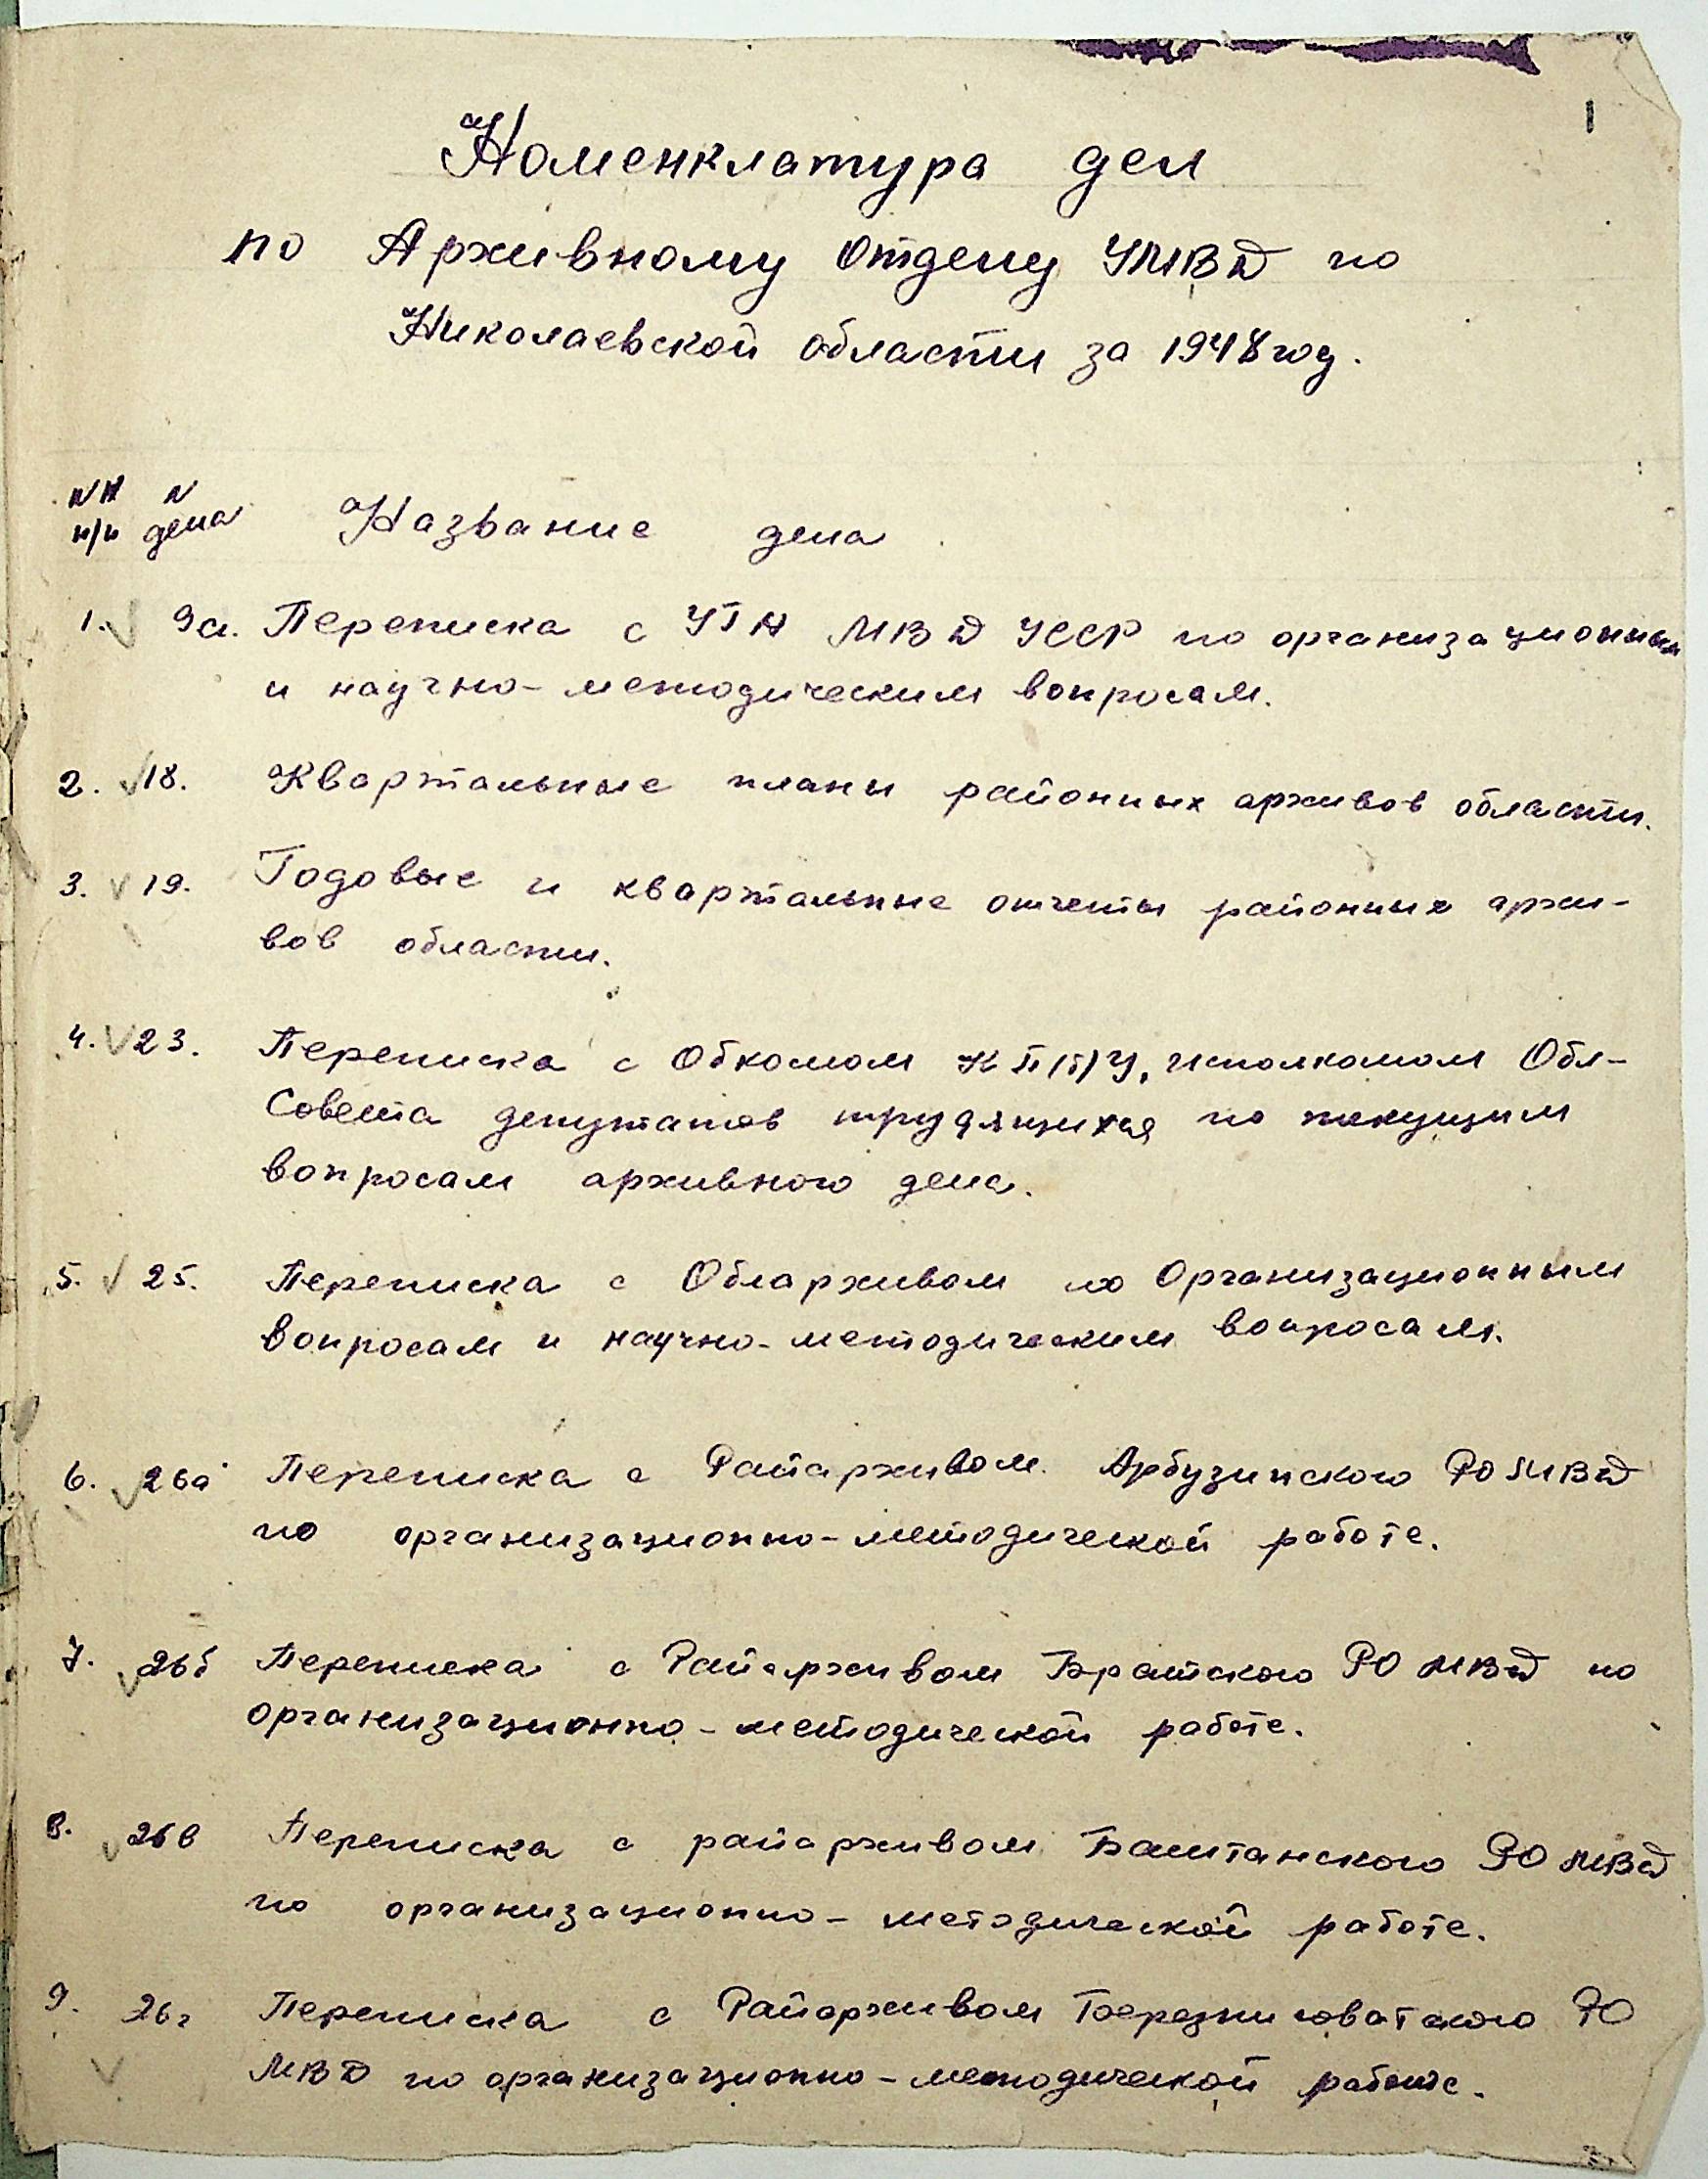 1
Номенклатура дел
по Архивному отделу УМВД по
Николаевской области за 1948 год.
NN N
п/п дела Название дела
1. 9а. Переписка с УГА МВД УССР по организационным
и научно-методическим вопросам.
2. 18. Квартальные планы районных архивов области.
3. 19. Годовые и квартальные отчеты районных архи-
вов области.
4. 23. Переписка с Обкомом КП/б/У, исполкомом Обл-
Совета депутатов трудящихся по текущим
вопросам архивного дела.
5. 25. Переписка с Обларживом по Организационным
вопросам и научно-методическим вопросам.
6. 26а Переписка с Райархивом Арбузинского РО МВД
по организационно-методической работе.
7. 26б Переписка с Райархивом Братского РО МВД по
организационно-методической работе.
8. 26в Переписка с райархивом Баштанского РО МВД
по организационно-методической работе.
9. 26г Переписка с Райархивом Березниговатского РО
МВД по организационно-методической работе.